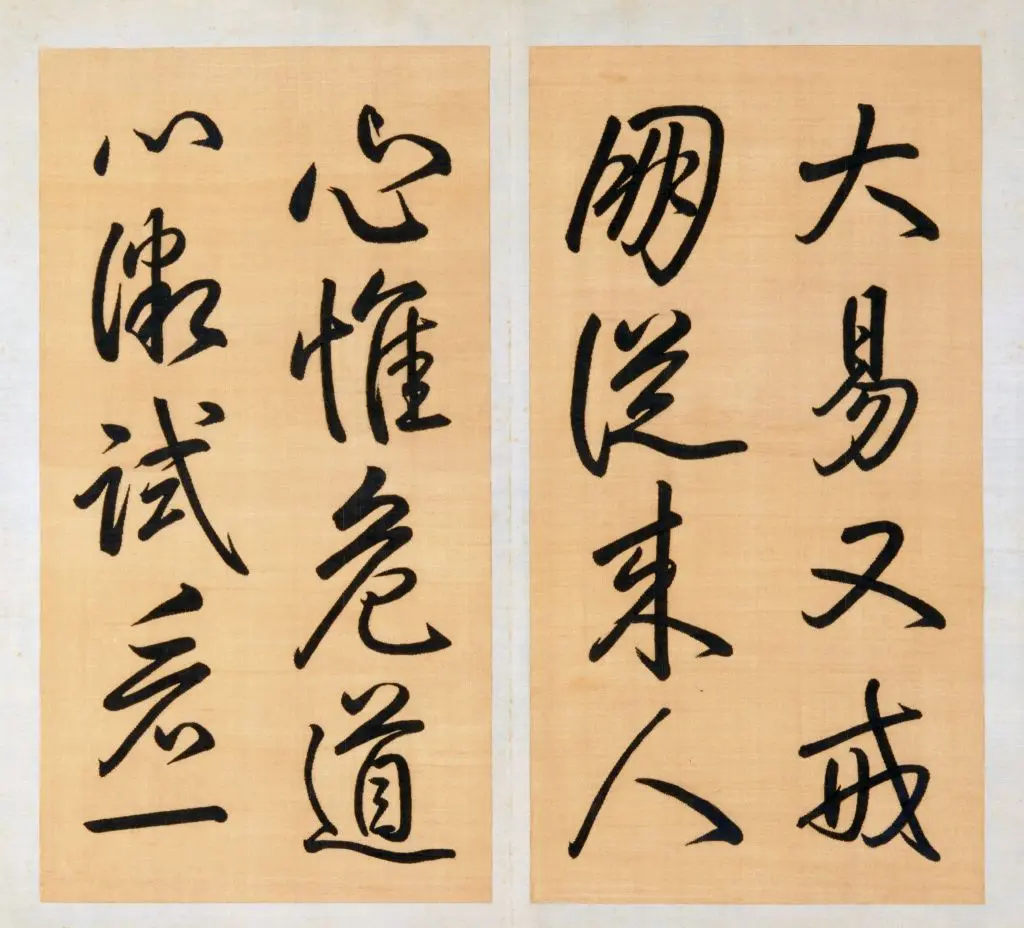 大易又戒
朋從來人
心惟危道
心微試看一